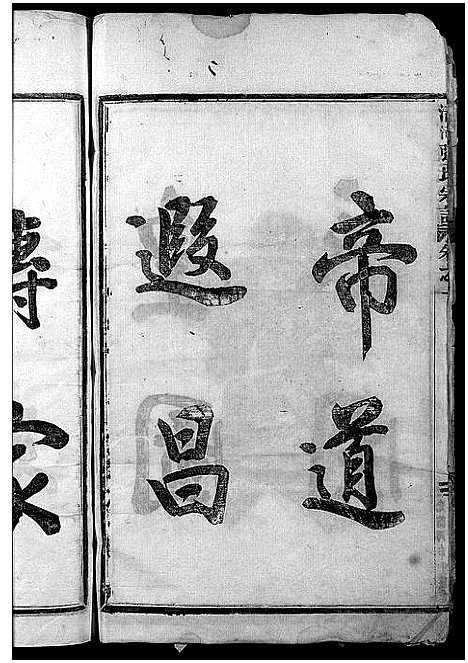 帝道
遐昌
傳家